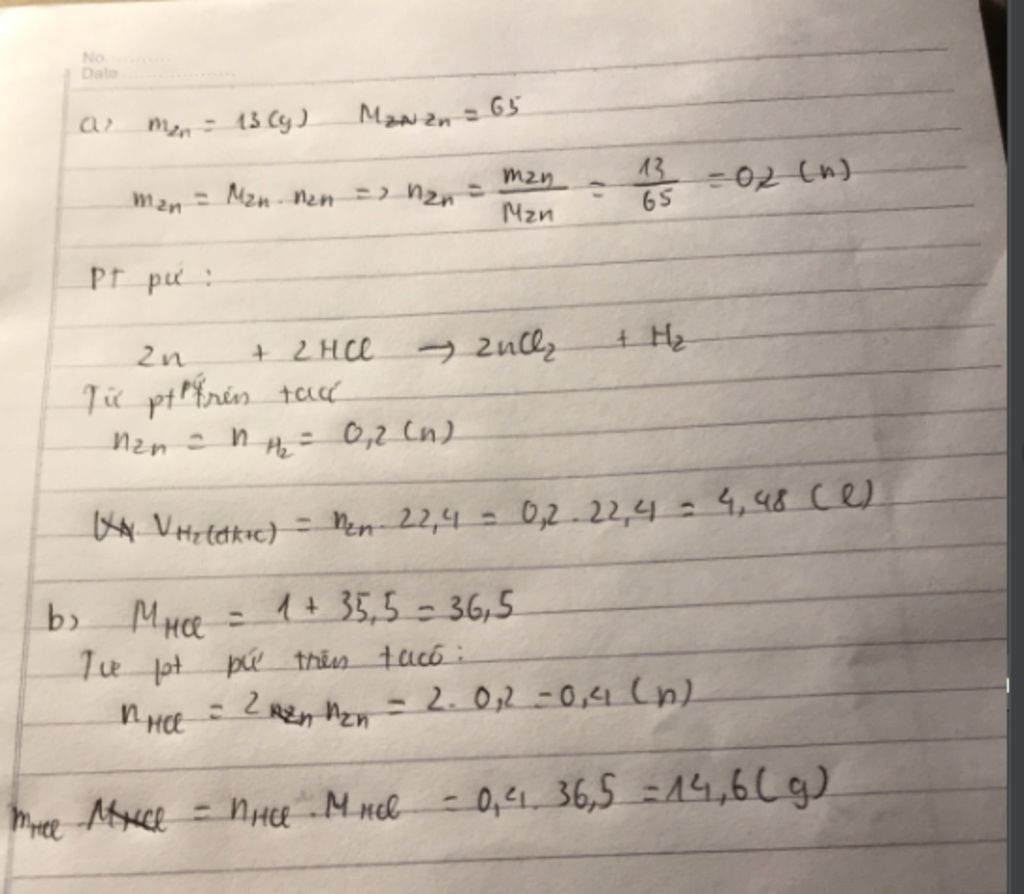 No. ..........
Date ....................
a) mZn = 13 (g) MZn = 65
mZn = MZn . nZn => nZn = mZn / MZn = 13 / 65 = 0,2 (n)
PT pứ :
Zn + 2HCl → ZnCl₂ + H₂
Từ pt pứ trên ta có
nZn = n H₂ = 0,2 (n)
V H₂(đktc) = nZn . 22,4 = 0,2 . 22,4 = 4,48 (l)
b) M HCl = 1 + 35,5 = 36,5
Từ pt pứ trên ta có :
n HCl = 2 nZn = 2 . 0,2 = 0,4 (n)
mHCl = nHCl . M HCl = 0,4 . 36,5 = 14,6 (g)